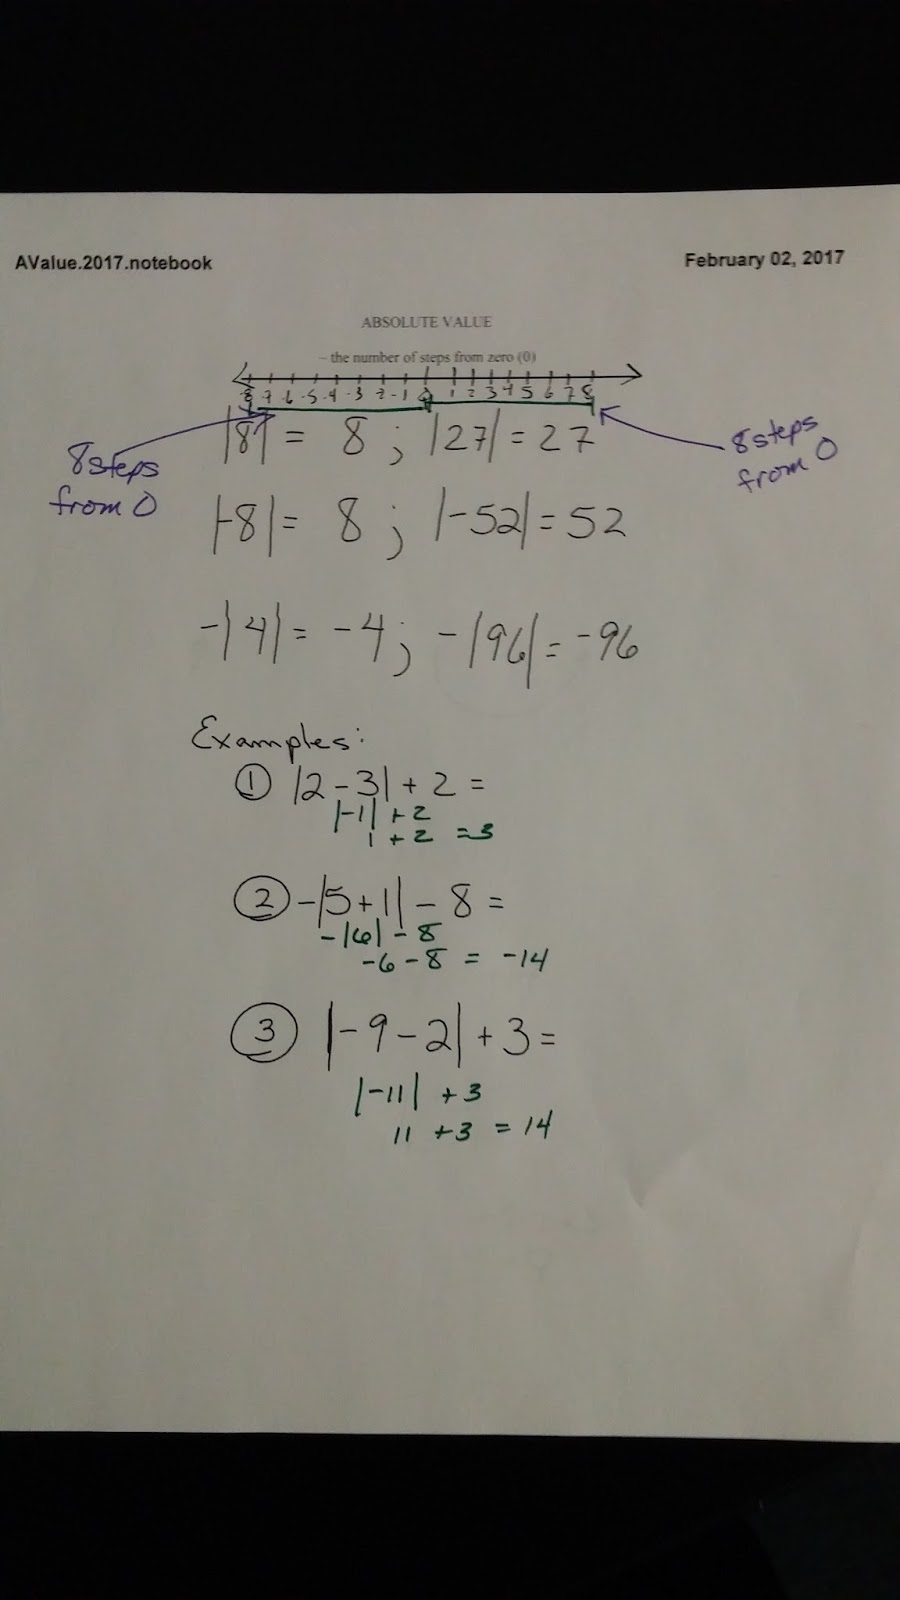 AValue.2017.notebook
February 02, 2017
ABSOLUTE VALUE
– the number of steps from zero (0)
-8 -7 -6 -5 -4 -3 -2 -1 0 1 2 3 4 5 6 7 8
|8| = 8 ; |27| = 27
8 steps
from 0
8 steps
from 0
|-8| = 8 ; |-52| = 52
-|4| = -4 ; -|96| = -96
Examples:
① |2 - 3| + 2 =
|-1| + 2
1 + 2 = 3
② -|5 + 1| - 8 =
-|6| - 8
-6 - 8 = -14
③ |-9 - 2| + 3 =
|-11| + 3
11 + 3 = 14